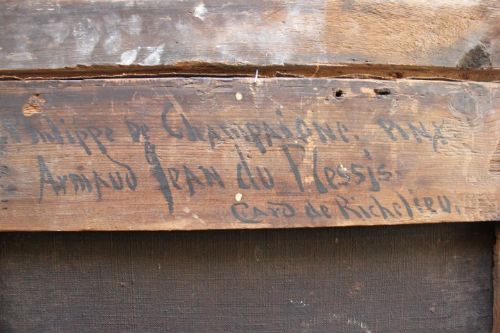 Philippe de Champaigne. pinx.
Armand Jean du Plessis.
Card de Richelieu.